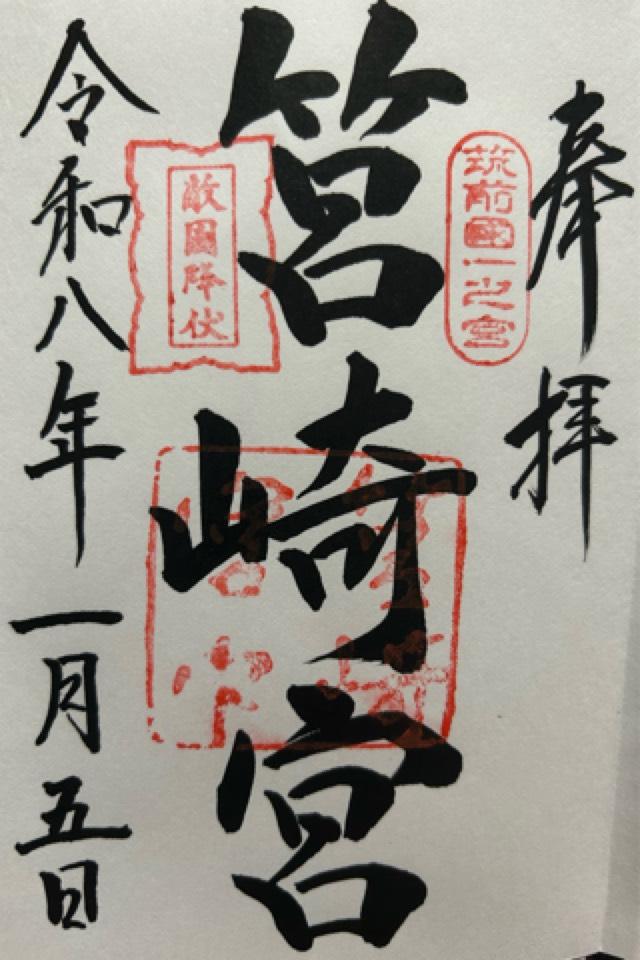 奉拝
筑前國一之宮
筥崎宮
敵國降伏
令和八年一月五日